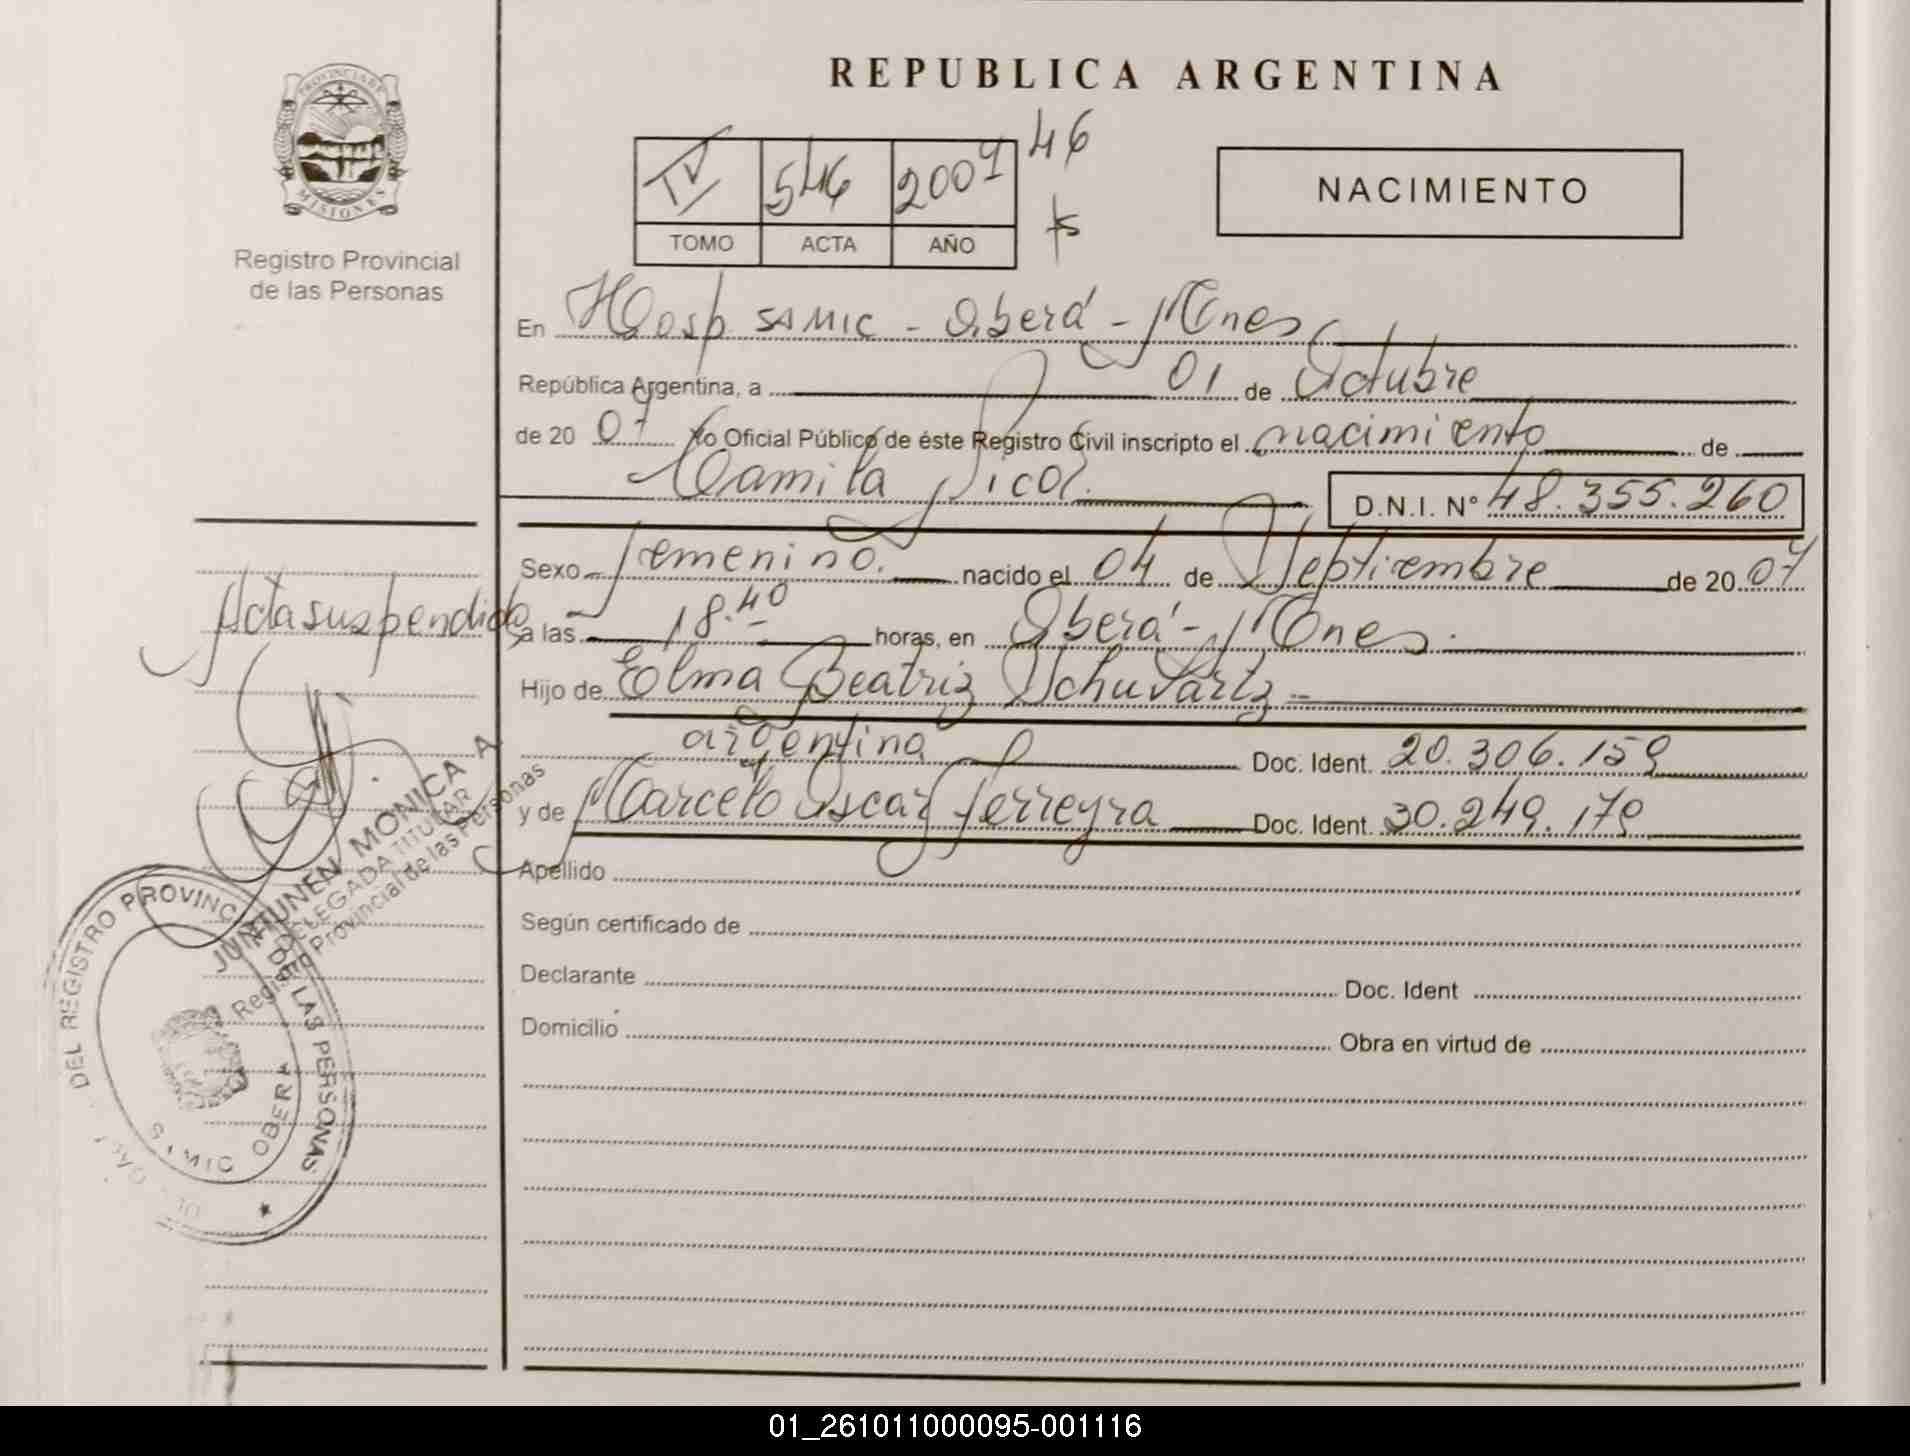 REPUBLICA ARGENTINA
PROVINCIA DE
MISIONES
Registro Provincial
de las Personas
IV 546 2007 46
TOMO ACTA AÑO
NACIMIENTO
En Hosp SAMIC - Oberá - Mnes
República Argentina, a 01 de Octubre
de 20 07 Yo Oficial Público de éste Registro Civil inscripto el nacimiento de
Camila Nicol
D.N.I. N° 48.355.260
Sexo femenino. nacido el 04 de Septiembre de 20 07
a las 18.40 horas, en Oberá - Mnes.
Hijo de Elma Beatriz Schuvartz
argentina Doc. Ident. 20.306.159
y de Marcelo Oscar Ferreyra Doc. Ident. 30.249.179
Apellido
Según certificado de
Declarante Doc. Ident
Domicilio Obra en virtud de
Acta suspendida
JUNTUNEN MONICA A
DELEGADA TITULAR
Registro Provincial de las Personas
DEL REGISTRO PROVINCIAL DE LAS PERSONAS
OBERA
01_261011000095-001116